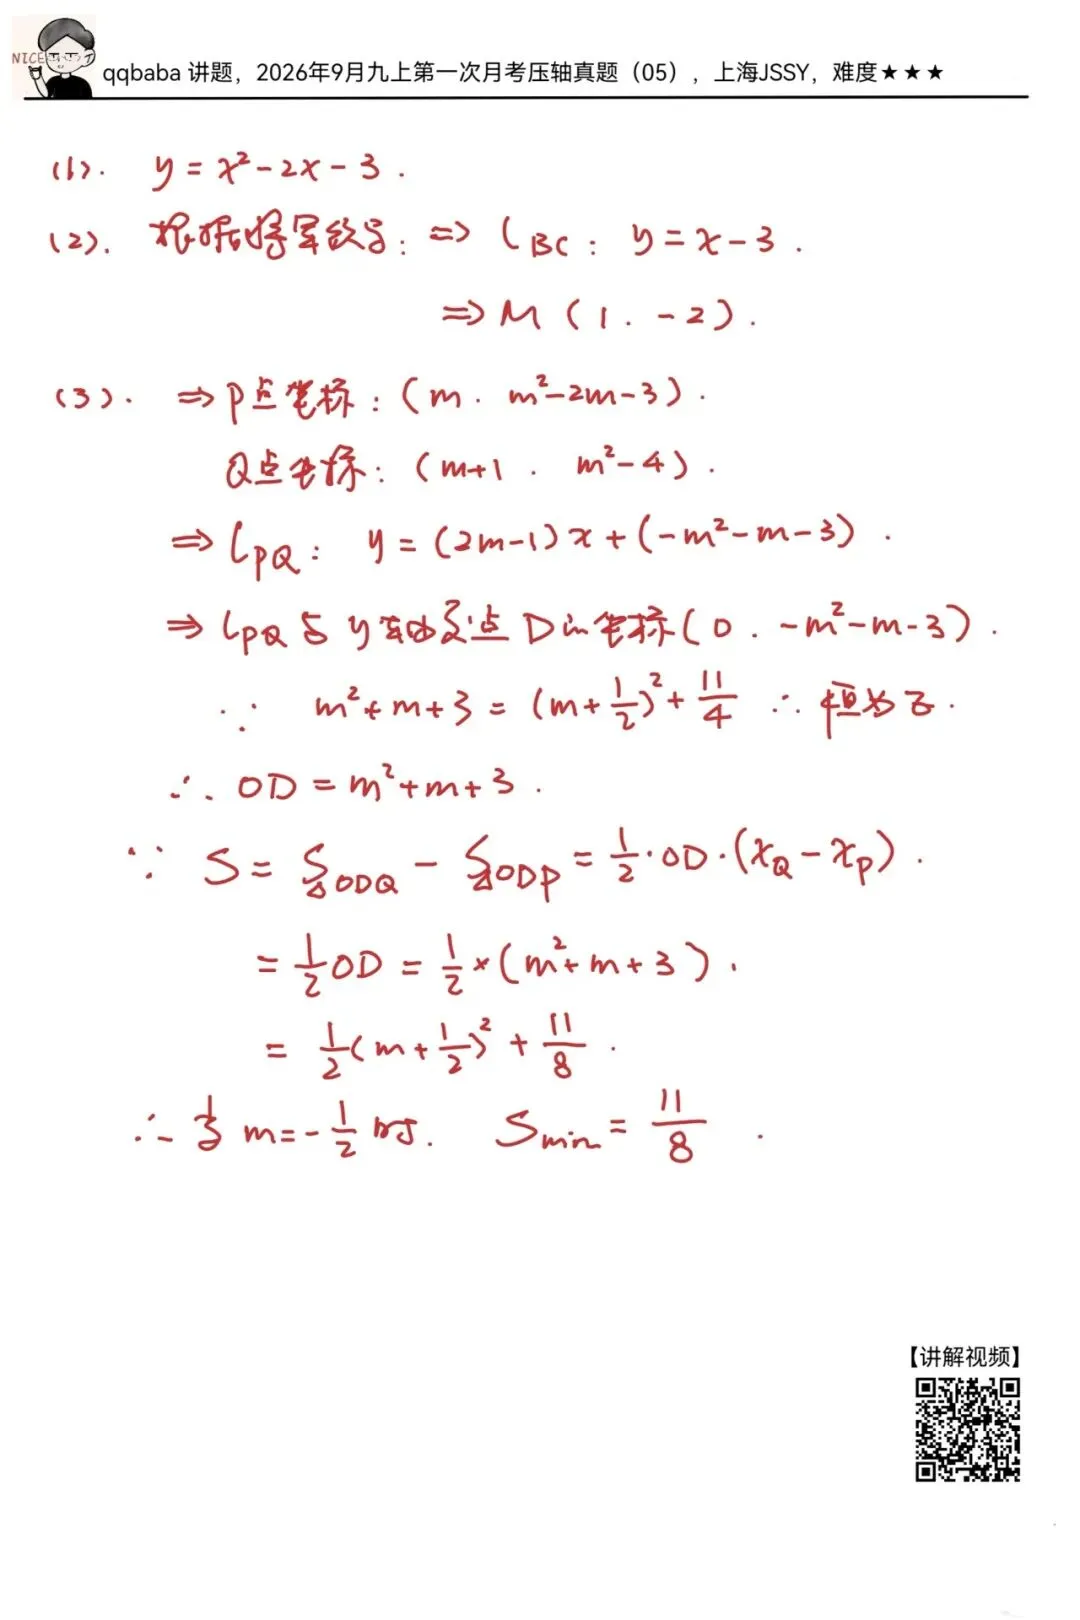 NICE
qqbaba 讲题，2026年9月九上第一次月考压轴真题（05），上海JSSY，难度★★★
(1). y = x² - 2x - 3 .
(2). 根据将军饮马: ⇒ l_BC : y = x - 3 .
⇒ M ( 1 . -2 ) .
(3). ⇒ P点坐标 : ( m . m² - 2m - 3 ) .
Q点坐标 : ( m+1 . m² - 4 ) .
⇒ l_PQ : y = (2m-1) x + (-m² - m - 3) .
⇒ l_PQ 与 y轴交点 D的坐标 ( 0 . -m² - m - 3 ) .
∵ m² + m + 3 = (m + 1/2)² + 11/4 ∴ 恒为正 .
∴ OD = m² + m + 3 .
∵ S = S△ODQ - S△ODP = 1/2 · OD · (x_Q - x_P) .
= 1/2 OD = 1/2 × (m² + m + 3) .
= 1/2 (m + 1/2)² + 11/8 .
∴ 当 m = -1/2 时. S_min = 11/8 .
【讲解视频】